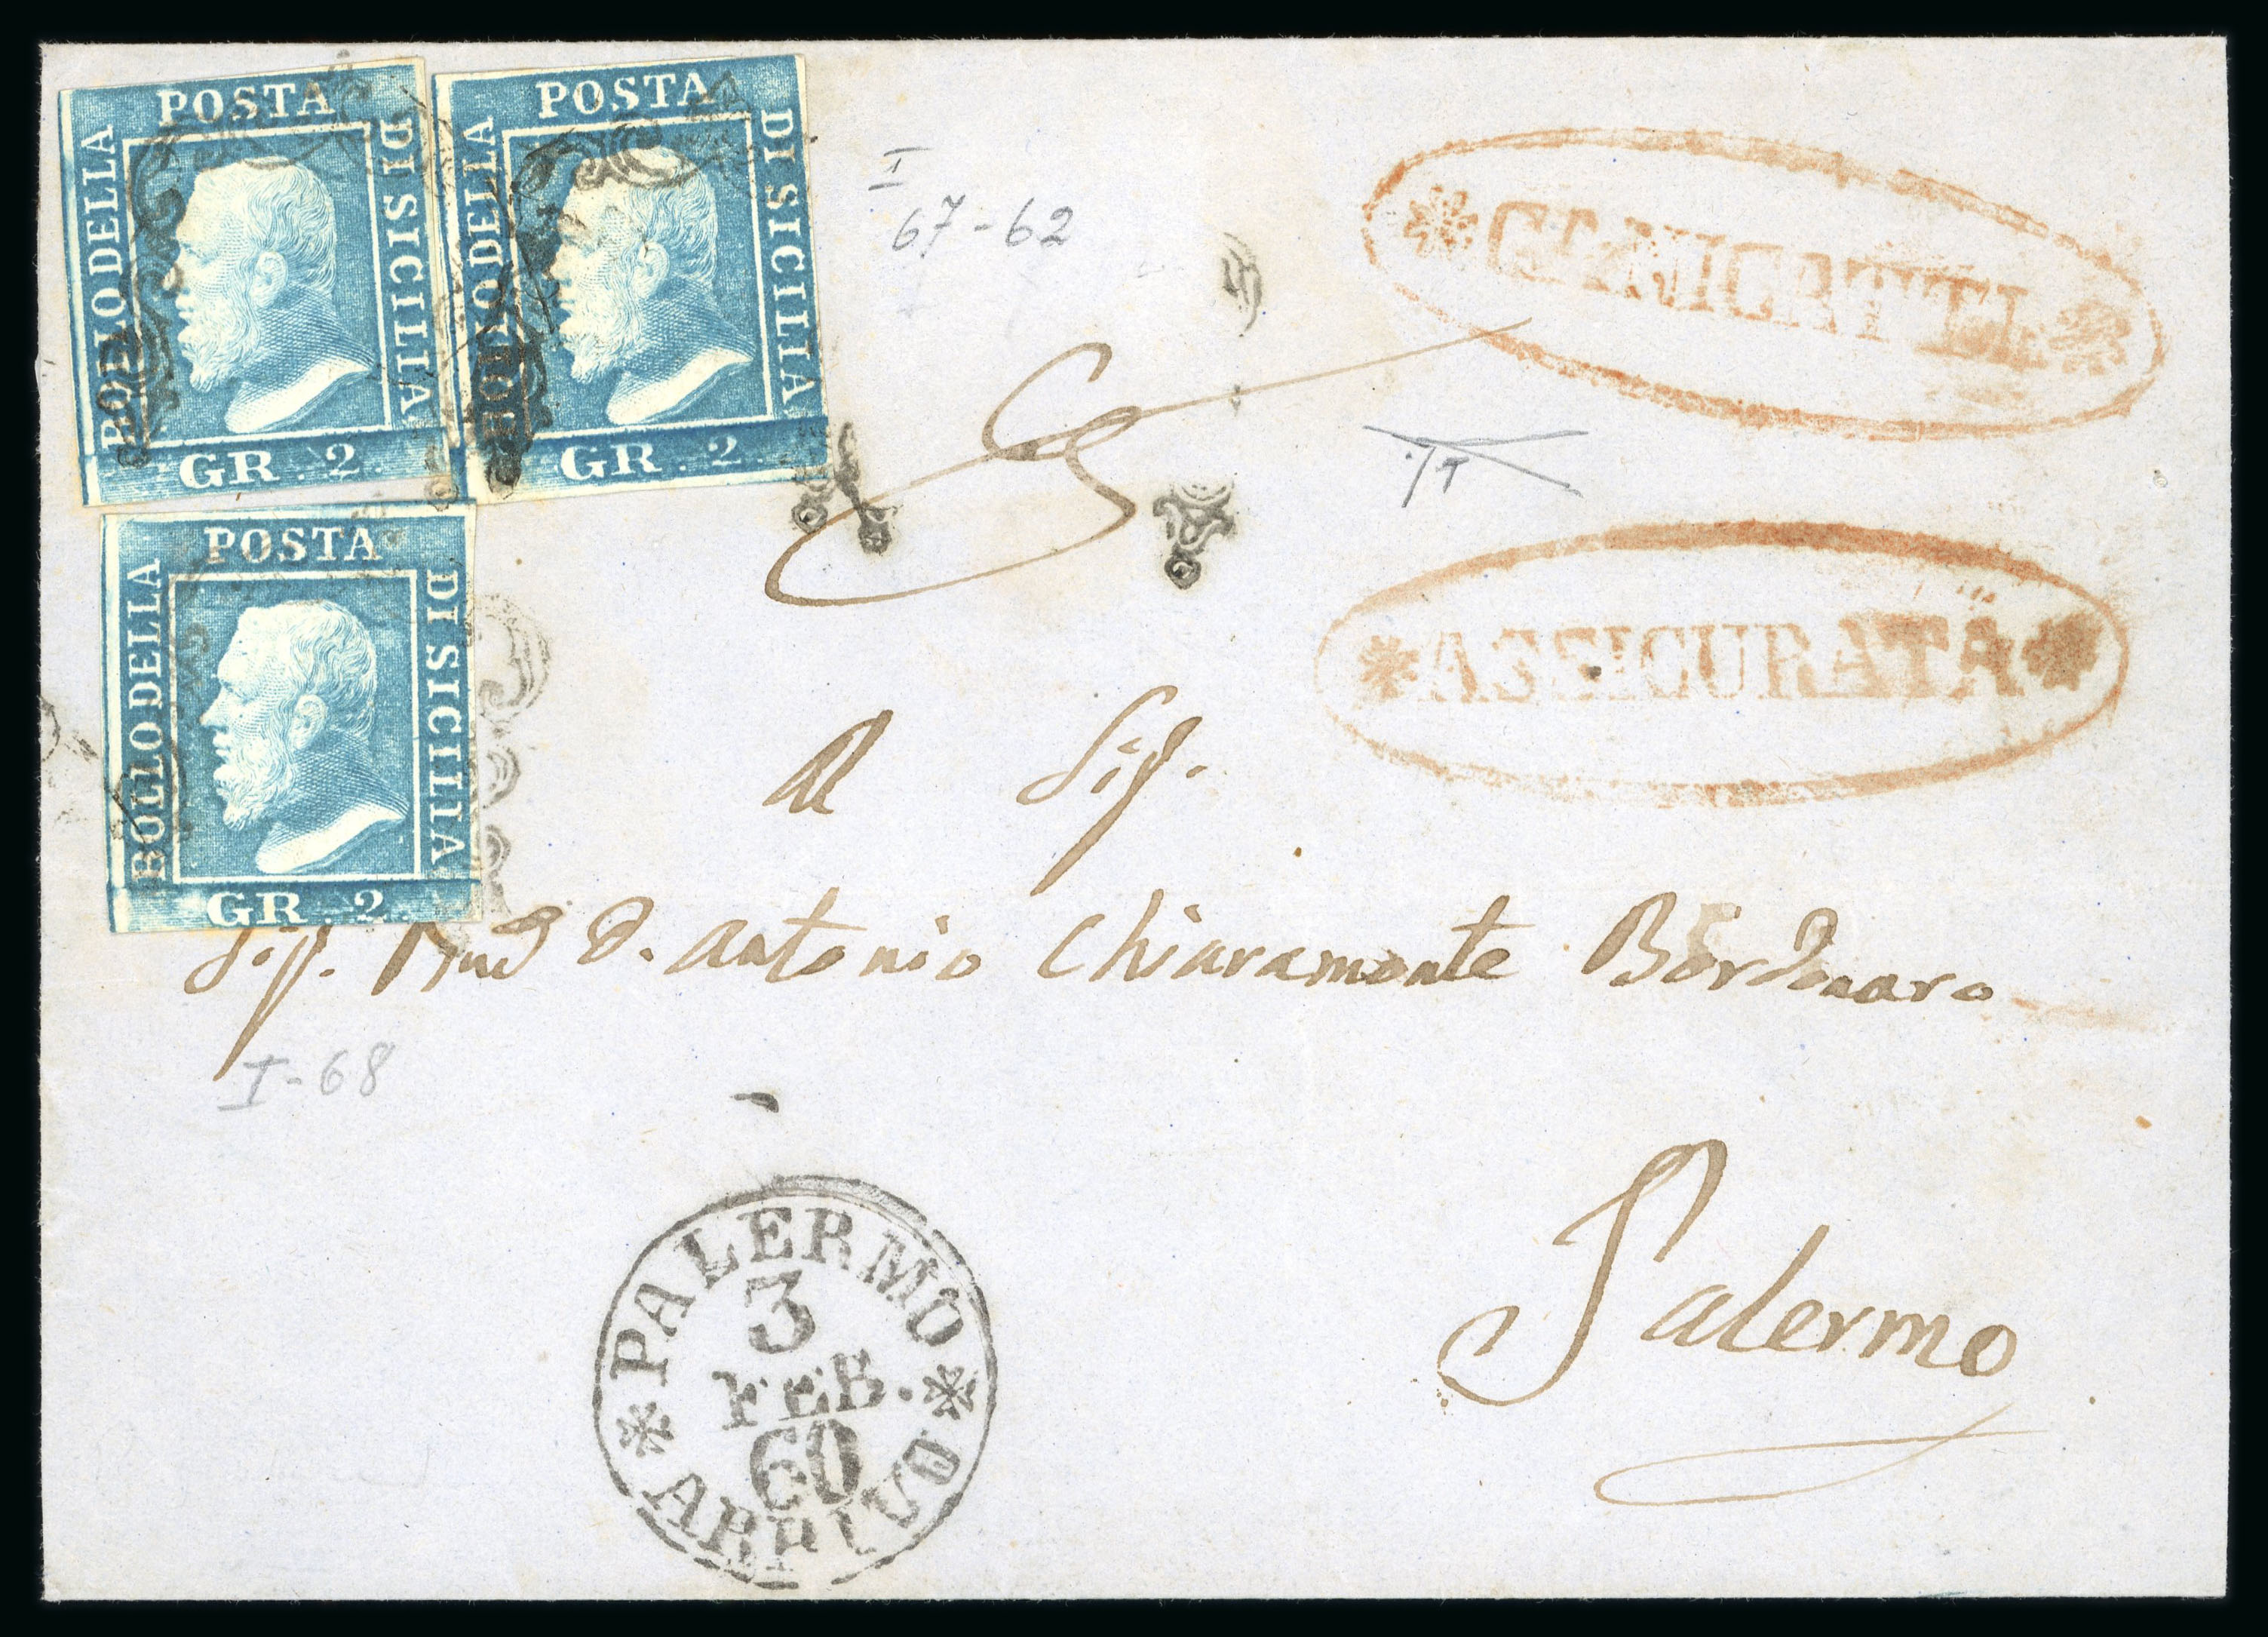 BOLLO DELLA POSTA DI SICILIA
GR. 2.
BOLLO DELLA POSTA DI SICILIA
GR. 2.
I
67-62
*CANICATTI*
BOLLO DELLA POSTA DI SICILIA
GR. 2.
*ASSICURATA*
Al Sig.
Sig. D. Antonio Chiaramonte Bordonaro
I-68
Palermo
*PALERMO*
3
FEB.
60
ARRIVO